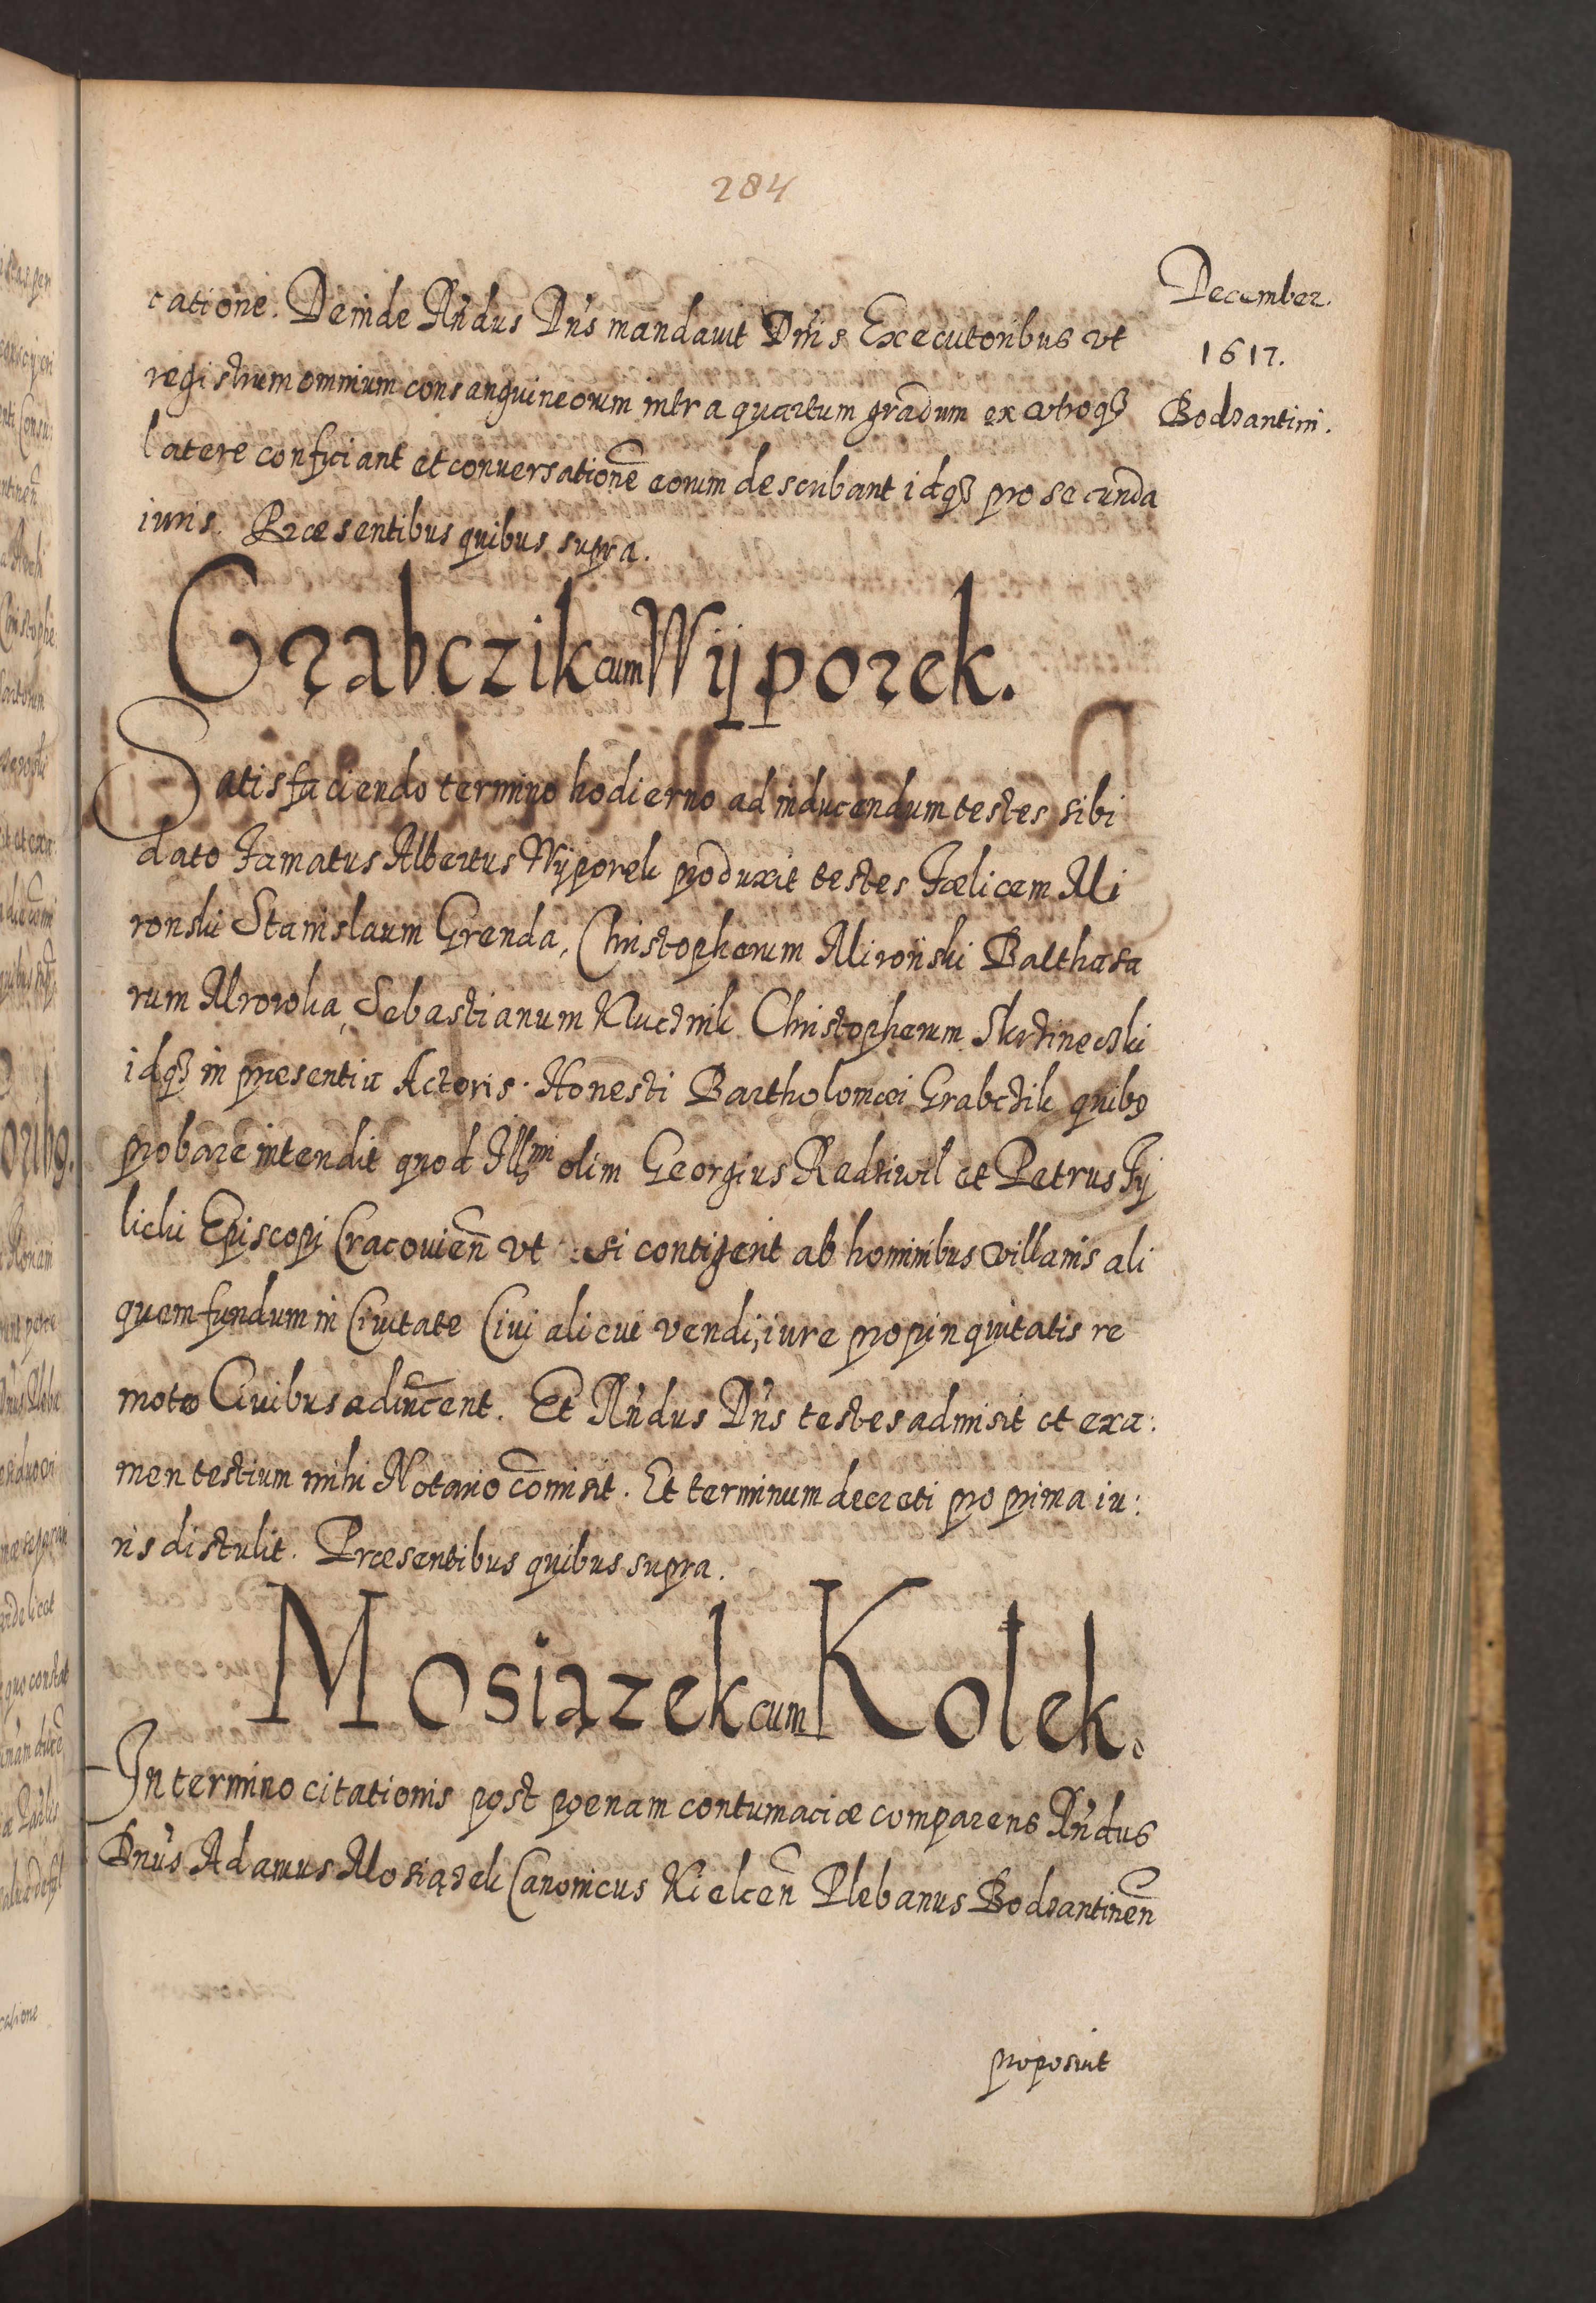 284
December.
1617.
Bodzantini.
catione. Deinde R̃ndus Dn̓s mandavit Dn̓is Executoribus vt
registrum omnium consanguineorum intra quartum gradum ex vtroqꝫ
latere conficiant et conuersationẽ eorum describant idqꝫ pro secunda
iuris. Præsentibus quibus supra.
Grąbczik cum Wÿporek.
Satisfaciendo termino hodierno ad inducendum testes sibi
dato Famatus Albertus Wÿporek produxit testes Fœlicem Mi
ronski Stanislaum Grenda, Christopherum Mironski Balthasa
rum Mrowka, Sebastianum Klucznik Christopherum Skrzineczki
idqꝫ in præsentia Actoris Honesti Bartholomæi Grabczik quibꝯ
probare intendit quod Illmi olim Georgius Radziwil et Petrus Tÿ
licki Episcopi Cracouien̄ vt si contigerit ab hominibus villanis ali
quem fundum in Ciuitate Ciui alicui vendi, iure propinquitatis re
moto Ciuibus adiudicent. Et R̃ndus Dn̓s testes admisit et exa:
men testium mihi Notario com̄isit. Et terminum decreti pro prima iu:
ris distulit. Præsentibus quibus supra.
Mosiązek cum Kołek.
In termino citationis post pœnam contumaciæ comparens R̃ndus
Dn̓us Adamus Mosiązek Canonicus Kielcen̄ Plebanus Bodzantinen̄
proposuit